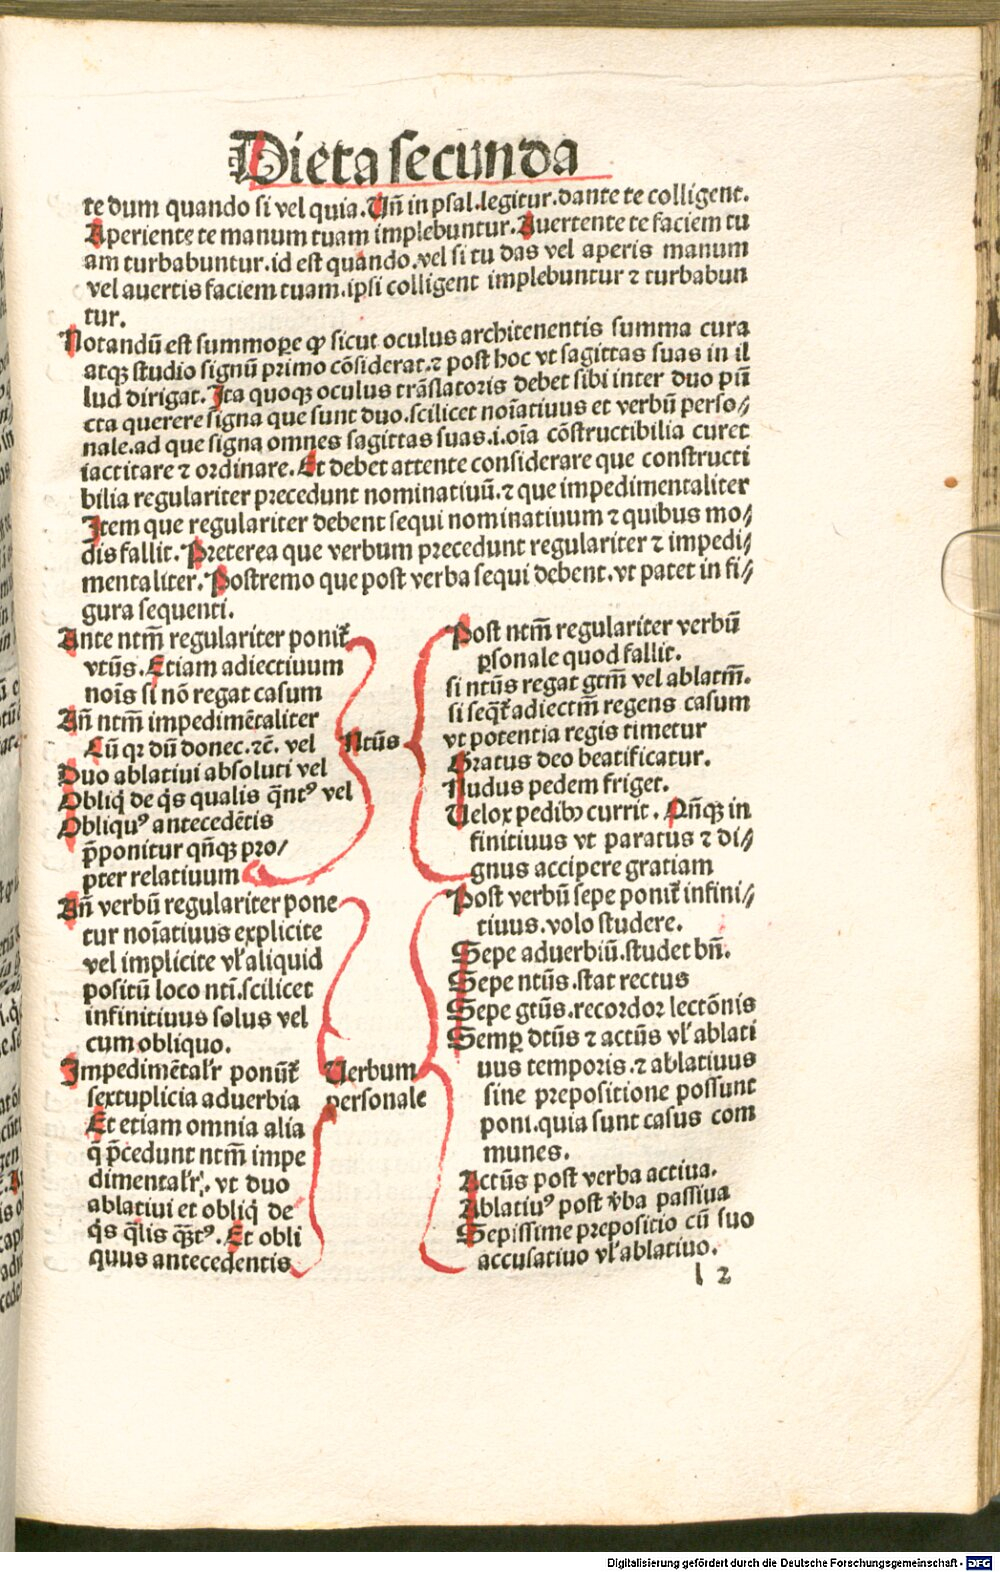 Dieta secunda
te dum quando si vel quia. Uñ in psal. legitur. dante te colligent.
Aperiente te manum tuam implebuntur. Auertente te faciem tu
am turbabuntur. id est quando. vel si tu das vel aperis manum
vel auertis faciem tuam. ipsi colligent implebuntur ⁊ turbabun
tur.
Notandū est summoꝑe ꝙ sicut oculus architenentis summa cura
atqꝫ studio signū primo cōsiderat. ⁊ post hoc vt sagittas suas in il
lud dirigat. Ita quoqꝫ oculus trāslatoris debet sibi inter duo pū
cta querere signa que sunt duo. scilicet noīatiuus et verbū perso⸗
nale. ad que signa omnes sagittas suas .i. oīa cōstructibilia curet
iactitare ⁊ ordinare. Et debet attente considerare que constructi
bilia regulariter precedunt nominatiuū. ⁊ que impedimentaliter
Item que regulariter debent sequi nominatiuum ⁊ quibus mo⸗
dis fallit. Preterea que verbum precedunt regulariter ⁊ impedi⸗
mentaliter. Postremo que post verba sequi debent. vt patet in fi⸗
gura sequenti.
Ante ntm̄ regulariter ponit̄
vtūs. Etiam adiectiuum
noīs si nō regat casum
Añ ntm̄ impedimētaliter
Cū qꝛ dū donec. ⁊c̄. vel
Duo ablatiui absoluti vel
Obliq̄ de q̄s qualis q̄ntꝰ vel
Obliquꝰ antecedētis
p̄ponitur qñqꝫ pro⸗
pter relatiuum
Ntūs
Post ntm̄ regulariter verbū
ꝑsonale quod fallit.
si ntūs regat gtm̄ vel ablatm̄.
si seqt̄ adiectm̄ regens casum
vt potentia regis timetur
Gratus deo beatificatur.
Nudus pedem friget.
Uelox pedibꝫ currit. Qñqꝫ in
finitiuus vt paratus ⁊ di⸗
gnus accipere gratiam
Añ verbū regulariter pone
tur noīatiuus explicite
vel implicite vl̓ aliquid
positū loco ntī. scilicet
infinitiuus solus vel
cum obliquo.
Impedimētal̓r ponūt̄
sextuplicia aduerbia
Et etiam omnia alia
q̄ p̄cedunt ntm̄ impe
dimental̓r, vt duo
ablatiui et obliq̄ de
q̄s q̄lis q̄ztꝰ. Et obli
quus antecedentis
Uerbum
personale
Post verbū sepe ponit̄ infini⸗
tiuus. volo studere.
Sepe aduerbiū. studet bn̄.
Sepe ntūs. stat rectus
Sepe gtūs. recordor lectōnis
Semꝑ dtūs ⁊ actūs vl̓ ablati
uus temporis. ⁊ ablatiuus
sine prepositione possunt
poni. quia sunt casus com
munes.
Actūs post verba actiua.
Ablatiuꝰ post v̄ba passiua
Sepissime prepositio cū suo
accusatiuo vl̓ ablatiuo.
l 2
Digitalisierung gefördert durch die Deutsche Forschungsgemeinschaft - DFG